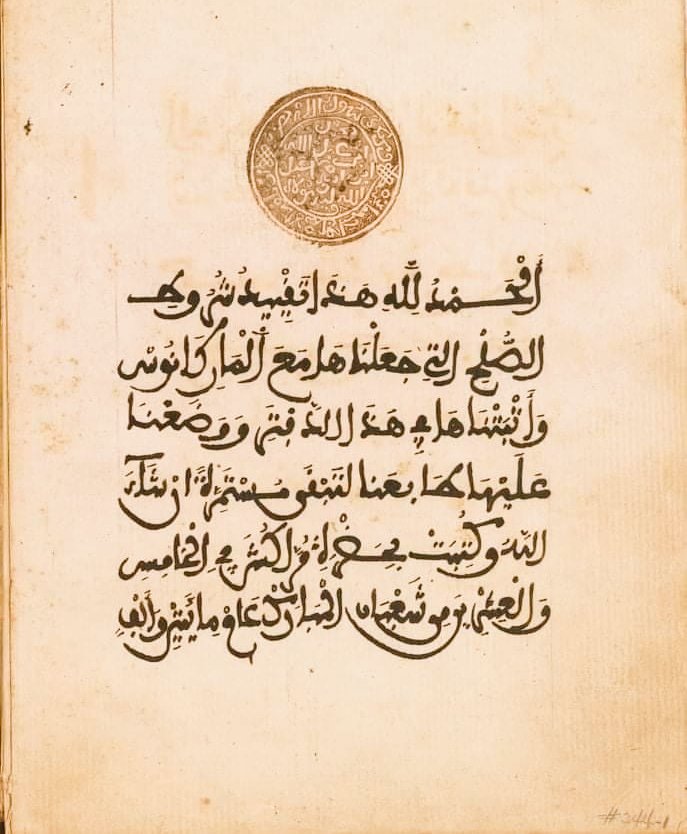 اَلْحَمْدُ لِلّٰهِ هَذَا تَقْيِيدُ شُرُوطِ
الصُّلْحِ التِي جَعَلْنَاهَا مَعَ الْمَارِكَانُوسْ
وَأَثْبَتْنَاهَا فِي هَذَا الدَّفْتَرِ وَوَضَعْنَا
عَلَيْهَا طَابِعَنا لِتَبْقَى مُسْتَمِرَّةً اِنْ شَآءَ
اللَّهُ وَكُتِبَتْ بِحَضْرَةِ مُرَّاكُشَ فِي الْخَامِسِ
وَالْعِشْرِينَ مِن شَعْبَانَ الْمُبَارَكْ عَامَ مِائَتَيْنِ وَأَلْفٍ